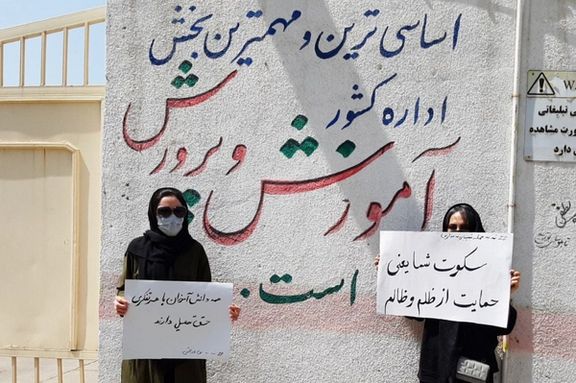 اساسی ترین و مهمترین بخش
اداره کشور
آموزش و پرورش
است.
همه دانش آموزان با هر تفکری
حق تحصیل دارند
سکوت شما یعنی
حمایت از ظلم و ظالم
W
تبلیغاتی
مشاهده
دارد